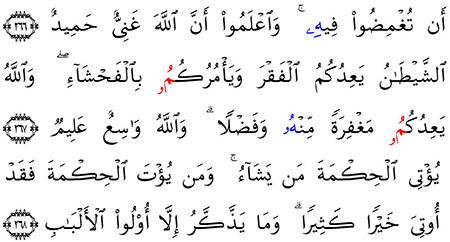 أَن تُغْمِضُوا۟ فِيهِۦ ۚ وَٱعْلَمُوا۟ أَنَّ ٱللَّهَ غَنِىٌّ حَمِيدٌ ٢٦٦
ٱلشَّيْطَـٰنُ يَعِدُكُمُ ٱلْفَقْرَ وَيَأْمُرُكُمُۥ بِٱلْفَحْشَآءِ ۖ وَٱللَّهُ
يَعِدُكُمُۥ مَغْفِرَةً مِّنْهُۥ وَفَضْلًا ۗ وَٱللَّهُ وَٰسِعٌ عَلِيمٌ ٢٦٧
يُؤْتِى ٱلْحِكْمَةَ مَن يَشَآءُ ۚ وَمَن يُؤْتَ ٱلْحِكْمَةَ فَقَدْ
أُوتِىَ خَيْرًا كَثِيرًا ۗ وَمَا يَذَّكَّرُ إِلَّا أُو۟لُوا۟ ٱلْأَلْبَـٰبِ ٢٦٨